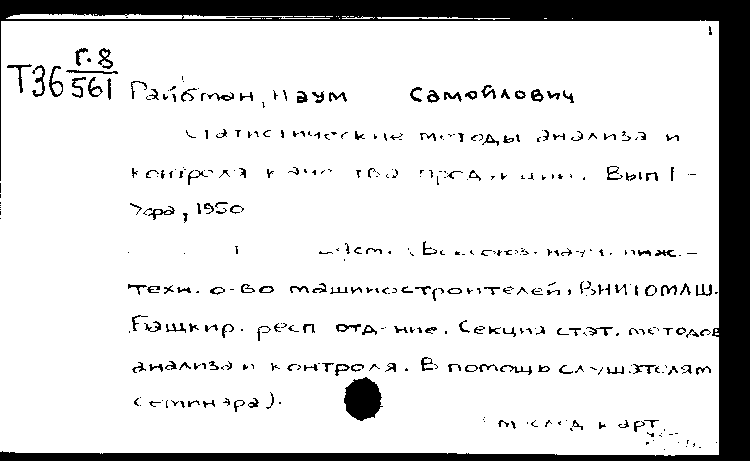 Т36 г.8
561
Гайбман, Наум Самойлович
Статистические методы анализа и
контроля качества продукции. Вып I -
Уфа, 1950
(Всесоюз. науч. инж.-
техн. о-во машиностроителей, ВНИТОМАШ.
Башкир. респ отд-ние. Секция стат. методов
анализа и контроля. В помощь слушателям
семинара).
см след карт.